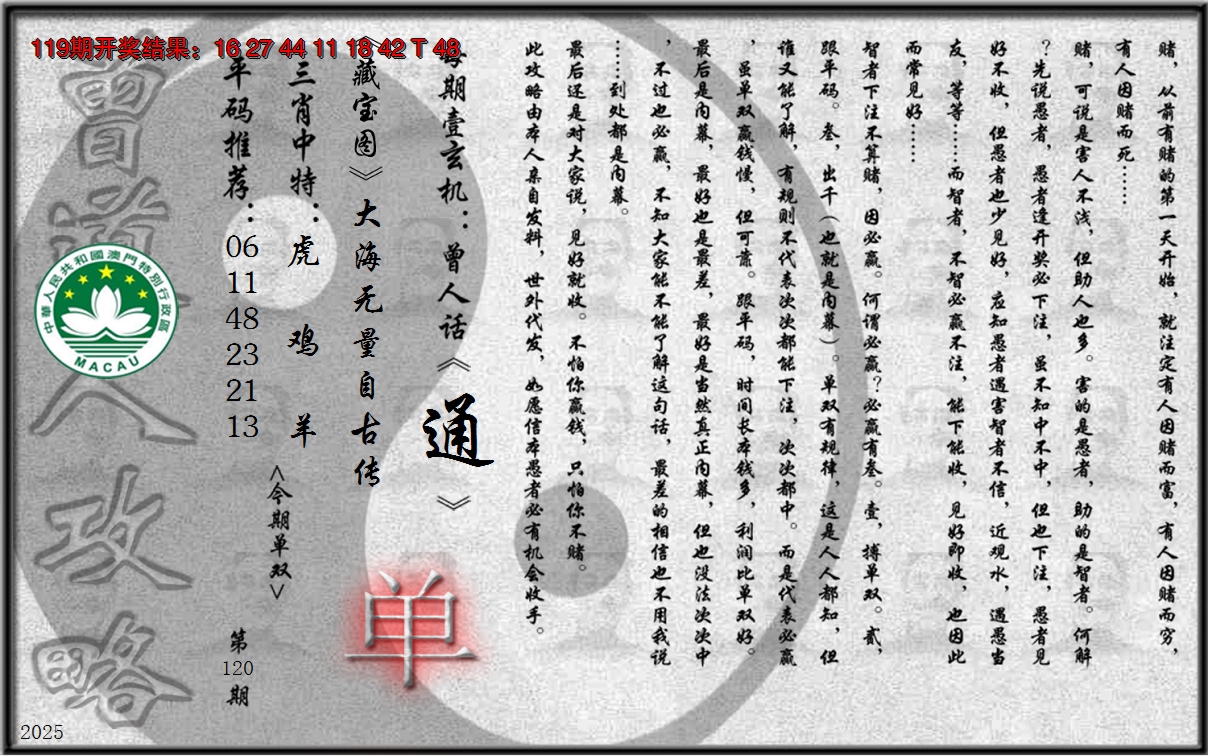 119期开奖结果：16 27 44 11 18 42 T 48
赌，从前有赌的第一天开始，就注定有人因赌而富，有人因赌而穷，
有人因赌而死……
赌，可说是害人不浅，但助人也多。害的是愚者，助的是智者。何解
？先说愚者，愚者逢开奖必下注，虽不知中不中，但也下注，愚者见
好不收，但愚者也少见好，应知愚者遇害智者不信，近观水，遇愚当
友，等等……而智者，不智必赢不注，能下能收，见好即收，也因此
而常见好……
智者下注不算赌，因必赢。何谓必赢？必赢有叁。壹，搏单双。贰，
跟平码。叁，出千（也就是内幕）。单双有规律，这是人人都知，但
谁又能了解，有规则不代表次次都能下注，次次都中。而是代表必赢
，虽单双赢钱慢，但可靠。跟平码，时间长本钱多，利润比单双好。
最后是内幕，最好也是最差，最好是当然真正内幕，但也没法次次中
，不过也必赢，不知大家能不能了解这句话，最差的相信也不用我说
……到处都是内幕。
最后还是对大家说，见好就收。不怕你赢钱，只怕你不赌。
此攻略由本人亲自发料，世外代发，如愿信本愚者必有机会收手。
每期壹玄机：曾人话《通》
《藏宝图》大海无量自古传
单
三肖中特：虎 鸡 羊
<今期单双>
平码推荐：
06
11
48
23
21
13
第
120
期
曾道人攻略
中華人民共和國澳門特別行政區
MACAU
2025